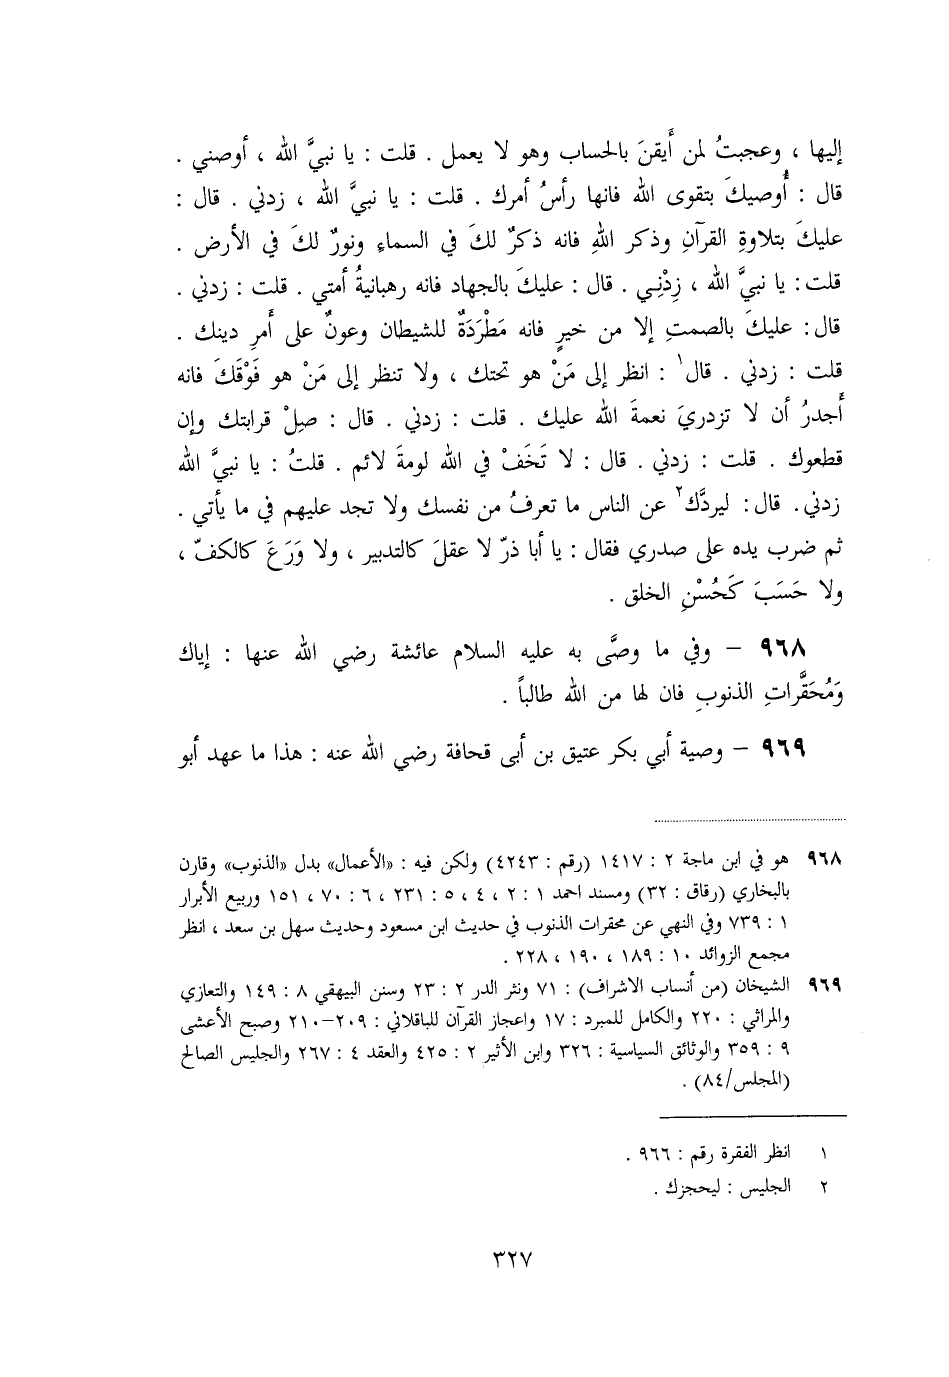 إليها ، وعجبتُ لمن أَيقنَ بالحساب وهو لا يعمل . قلت : يا نبيَّ الله ، أوصني .
قال : أُوصيكَ بتقوى الله فانها رأسُ أمرك . قلت : يا نبيَّ الله ، زدني . قال :
عليكَ بتلاوةِ القرآنِ وذكر اللهِ فانه ذكرٌ لكَ في السماءِ ونورٌ لكَ في الأرض .
قلت : يا نبيَّ الله ، زِدْنِي . قال : عليكَ بالجهاد فانه رهبانيةُ أمتي . قلت : زدني .
قال : عليكَ بالصمتِ إلا من خيرٍ فانه مَطْرَدَةٌ للشيطان وعونٌ على أَمرِ دينك .
قلت : زدني . قال١ : انظر إلى مَنْ هو تحتك ، ولا تنظر إلى مَنْ هو فَوْقَكَ فانه
أَجدرُ أن لا تزدريَ نعمةَ الله عليك . قلت : زدني . قال : صِلْ قرابتك وإن
قطعوك . قلت : زدني . قال : لا تَخَفْ في الله لومةَ لائم . قلتُ : يا نبيَّ الله
زدني . قال : ليردَّك٢ عن الناس ما تعرفُ من نفسك ولا تجد عليهم في ما يأتي .
ثم ضرب يده على صدري فقال : يا أبا ذرّ لا عقلَ كالتدبير ، ولا وَرَعَ كالكفّ ،
ولا حَسَبَ كَحُسْنِ الخلق .
٩٦٨ – وفي ما وصَّى به عليه السلام عائشة رضي الله عنها : إياك
وَمُحَقَّراتِ الذنوبِ فان لها من الله طالباً .
٩٦٩ – وصية أبي بكر عتيق بن أبى قحافة رضي الله عنه : هذا ما عهد أبو
٩٦٨ هو في ابن ماجة ٢ : ١٤١٧ (رقم : ٤٢٤٣) ولكن فيه : «الأعمال» بدل «الذنوب» وقارن
بالبخاري (رقاق : ٣٢) ومسند احمد ١ : ٢ ، ٤ ، ٥ : ٢٣١ ، ٦ : ٧٠ ، ١٥١ وربيع الأبرار
١ : ٧٣٩ وفي النهي عن محقرات الذنوب في حديث ابن مسعود وحديث سهل بن سعد ، انظر
مجمع الزوائد ١٠ : ١٨٩ ، ١٩٠ ، ٢٢٨ .
٩٦٩ الشيخان (من أنساب الاشراف) : ٧١ ونثر الدر ٢ : ٢٣ وسنن البيهقي ٨ : ١٤٩ والتعازي
والمراثي : ٢٢٠ والكامل للمبرد : ١٧ واعجاز القرآن للباقلاني : ٢٠٩–٢١٠ وصبح الأعشى
٩ : ٣٥٩ والوثائق السياسية : ٣٢٦ وابن الأثير ٢ : ٤٢٥ والعقد ٤ : ٢٦٧ والجليس الصالح
(المجلس/٨٤) .
١ انظر الفقرة رقم : ٩٦٦ .
٢ الجليس : ليحجزك .
٣٢٧